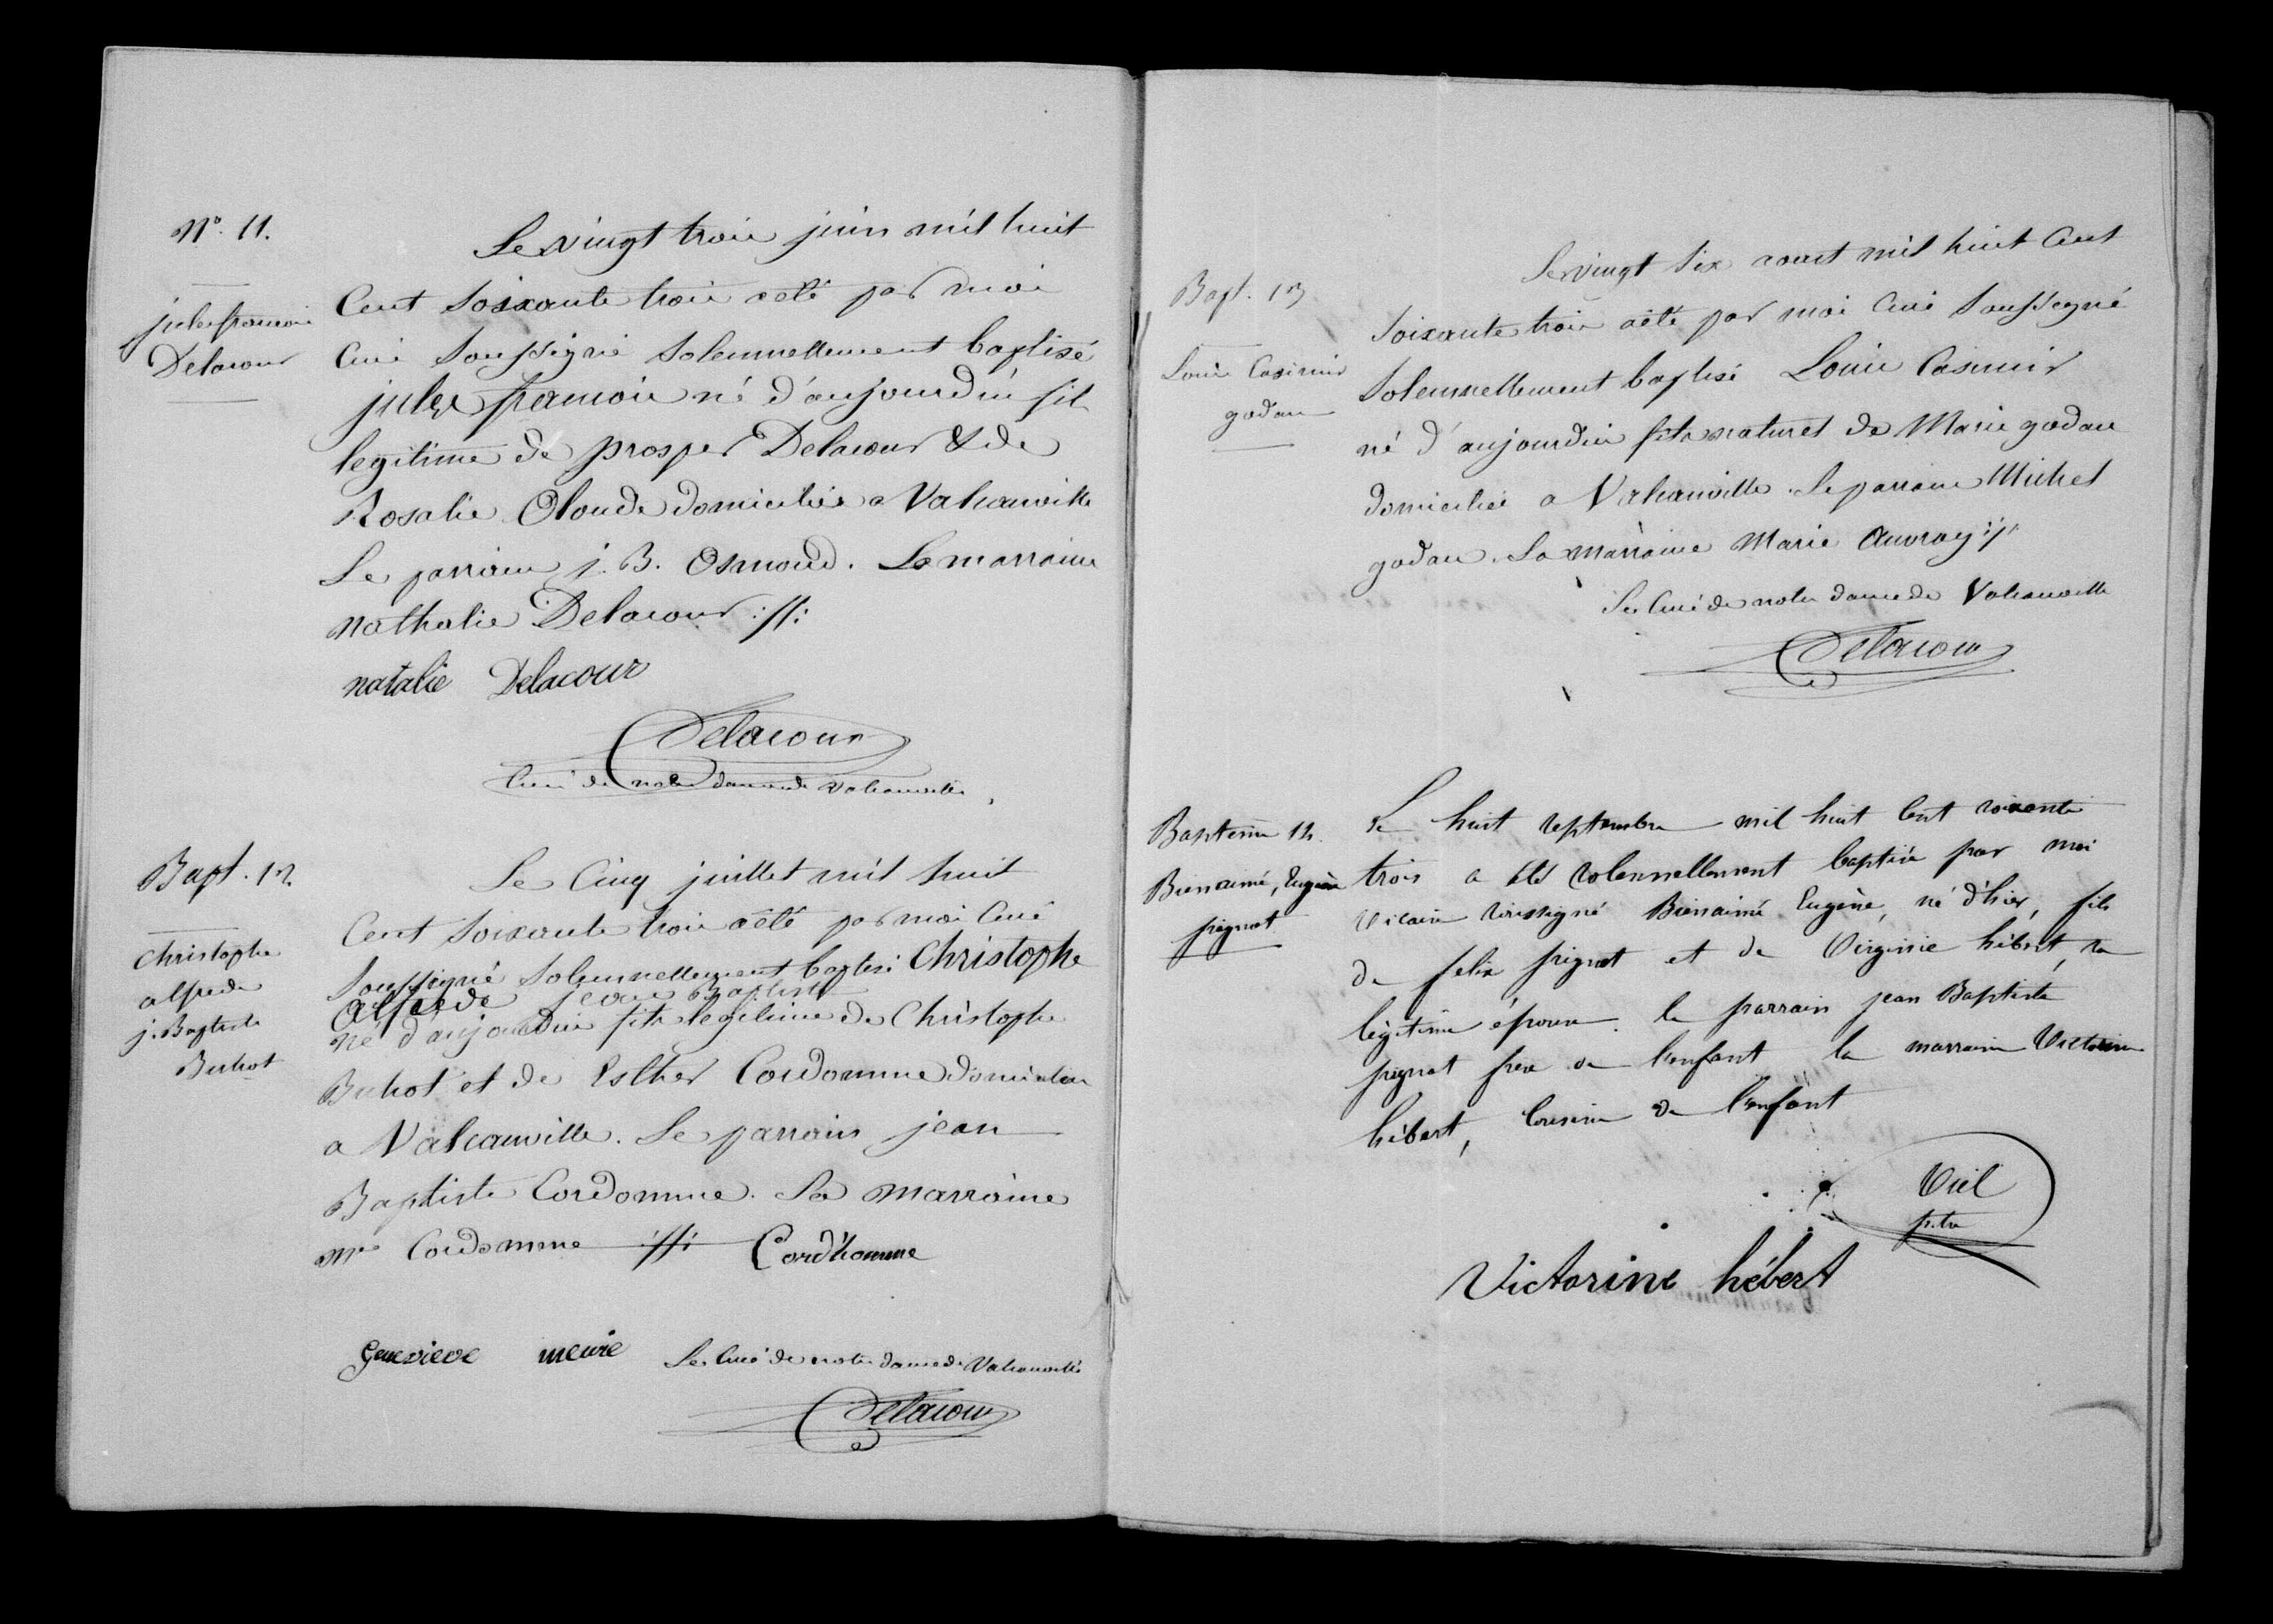 No. 11.
jules francois
Delacour
Le vingt trois juin mil huit
Cent Soixante trois a été par moi
Curé Soussigné Solennellement baptisé
jules francois né d'aujourdui fils
legitime de prosper Delacour & de
Rosalie Olonde domiciliés a Valcanville
Le parrain j. B. Osmond. La marraine
nathalie Delacour
natalie Delacour
Delacour
Curé de notre dame de Valcanville
Bapt. 12.
Christophe
alfrede
j. Baptiste
Buhot
Le Cinq juillet mil huit
Cent Soixante trois a été par moi Curé
Soussigné Solennellement baptisé Christophe
alfrede jean Baptiste
né d'aujourdui fils legitime de Christophe
Buhot et de Esther Cordomme domiciliés
a Valcanville. Le parrain jean
Baptiste Cordomme. La marraine
Cordomme Cord'homme
Genevieve
Le Curé de notre dame de Valcanville
Delacour
Bapt. 13
Louis Casimir
godau
Le vingt Six aout mil huit Cent
Soixante trois a été par moi Curé Soussigné
Solennellement baptisé Louis Casimir
né d'aujourdui fils naturel de Marie godau
domiciliée a Valcanville. Le parrain Michel
godau. La marraine Marie Auvray
Le Curé de notre dame de Valcanville
Delacour
Baptême 14.
Bienaimé, Eugène
pignot
Le huit septembre mil huit Cent soixante
trois a été solennellement baptisé par moi
Vicaire soussigné Bienaimé Eugène, né d'hier, fils
de felix pignot et de Virginie hébert, sa
légitime épouse. le parrain jean Baptiste
pignot frere de l'enfant la marraine Victorine
hébert, Cousine de l'enfant
Viel
ptre
Victorine hébert